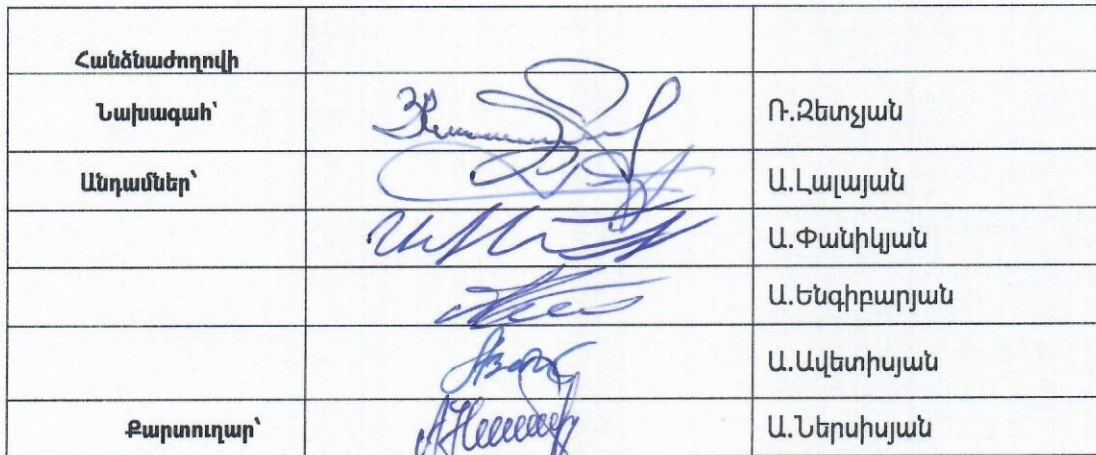 Հանձնաժողովի
Նախագահ՝ Ռ.Զետչյան
Անդամներ՝ Ա.Լալայան
Ա.Փանիկյան
Ա.Ենգիբարյան
Ա.Ավետիսյան
Քարտուղար՝ Ա.Ներսիսյան